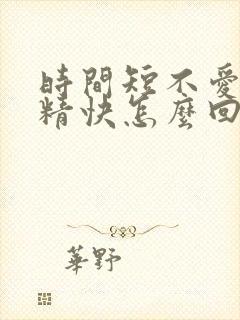 時間短不愛
精快怎麼回
華野